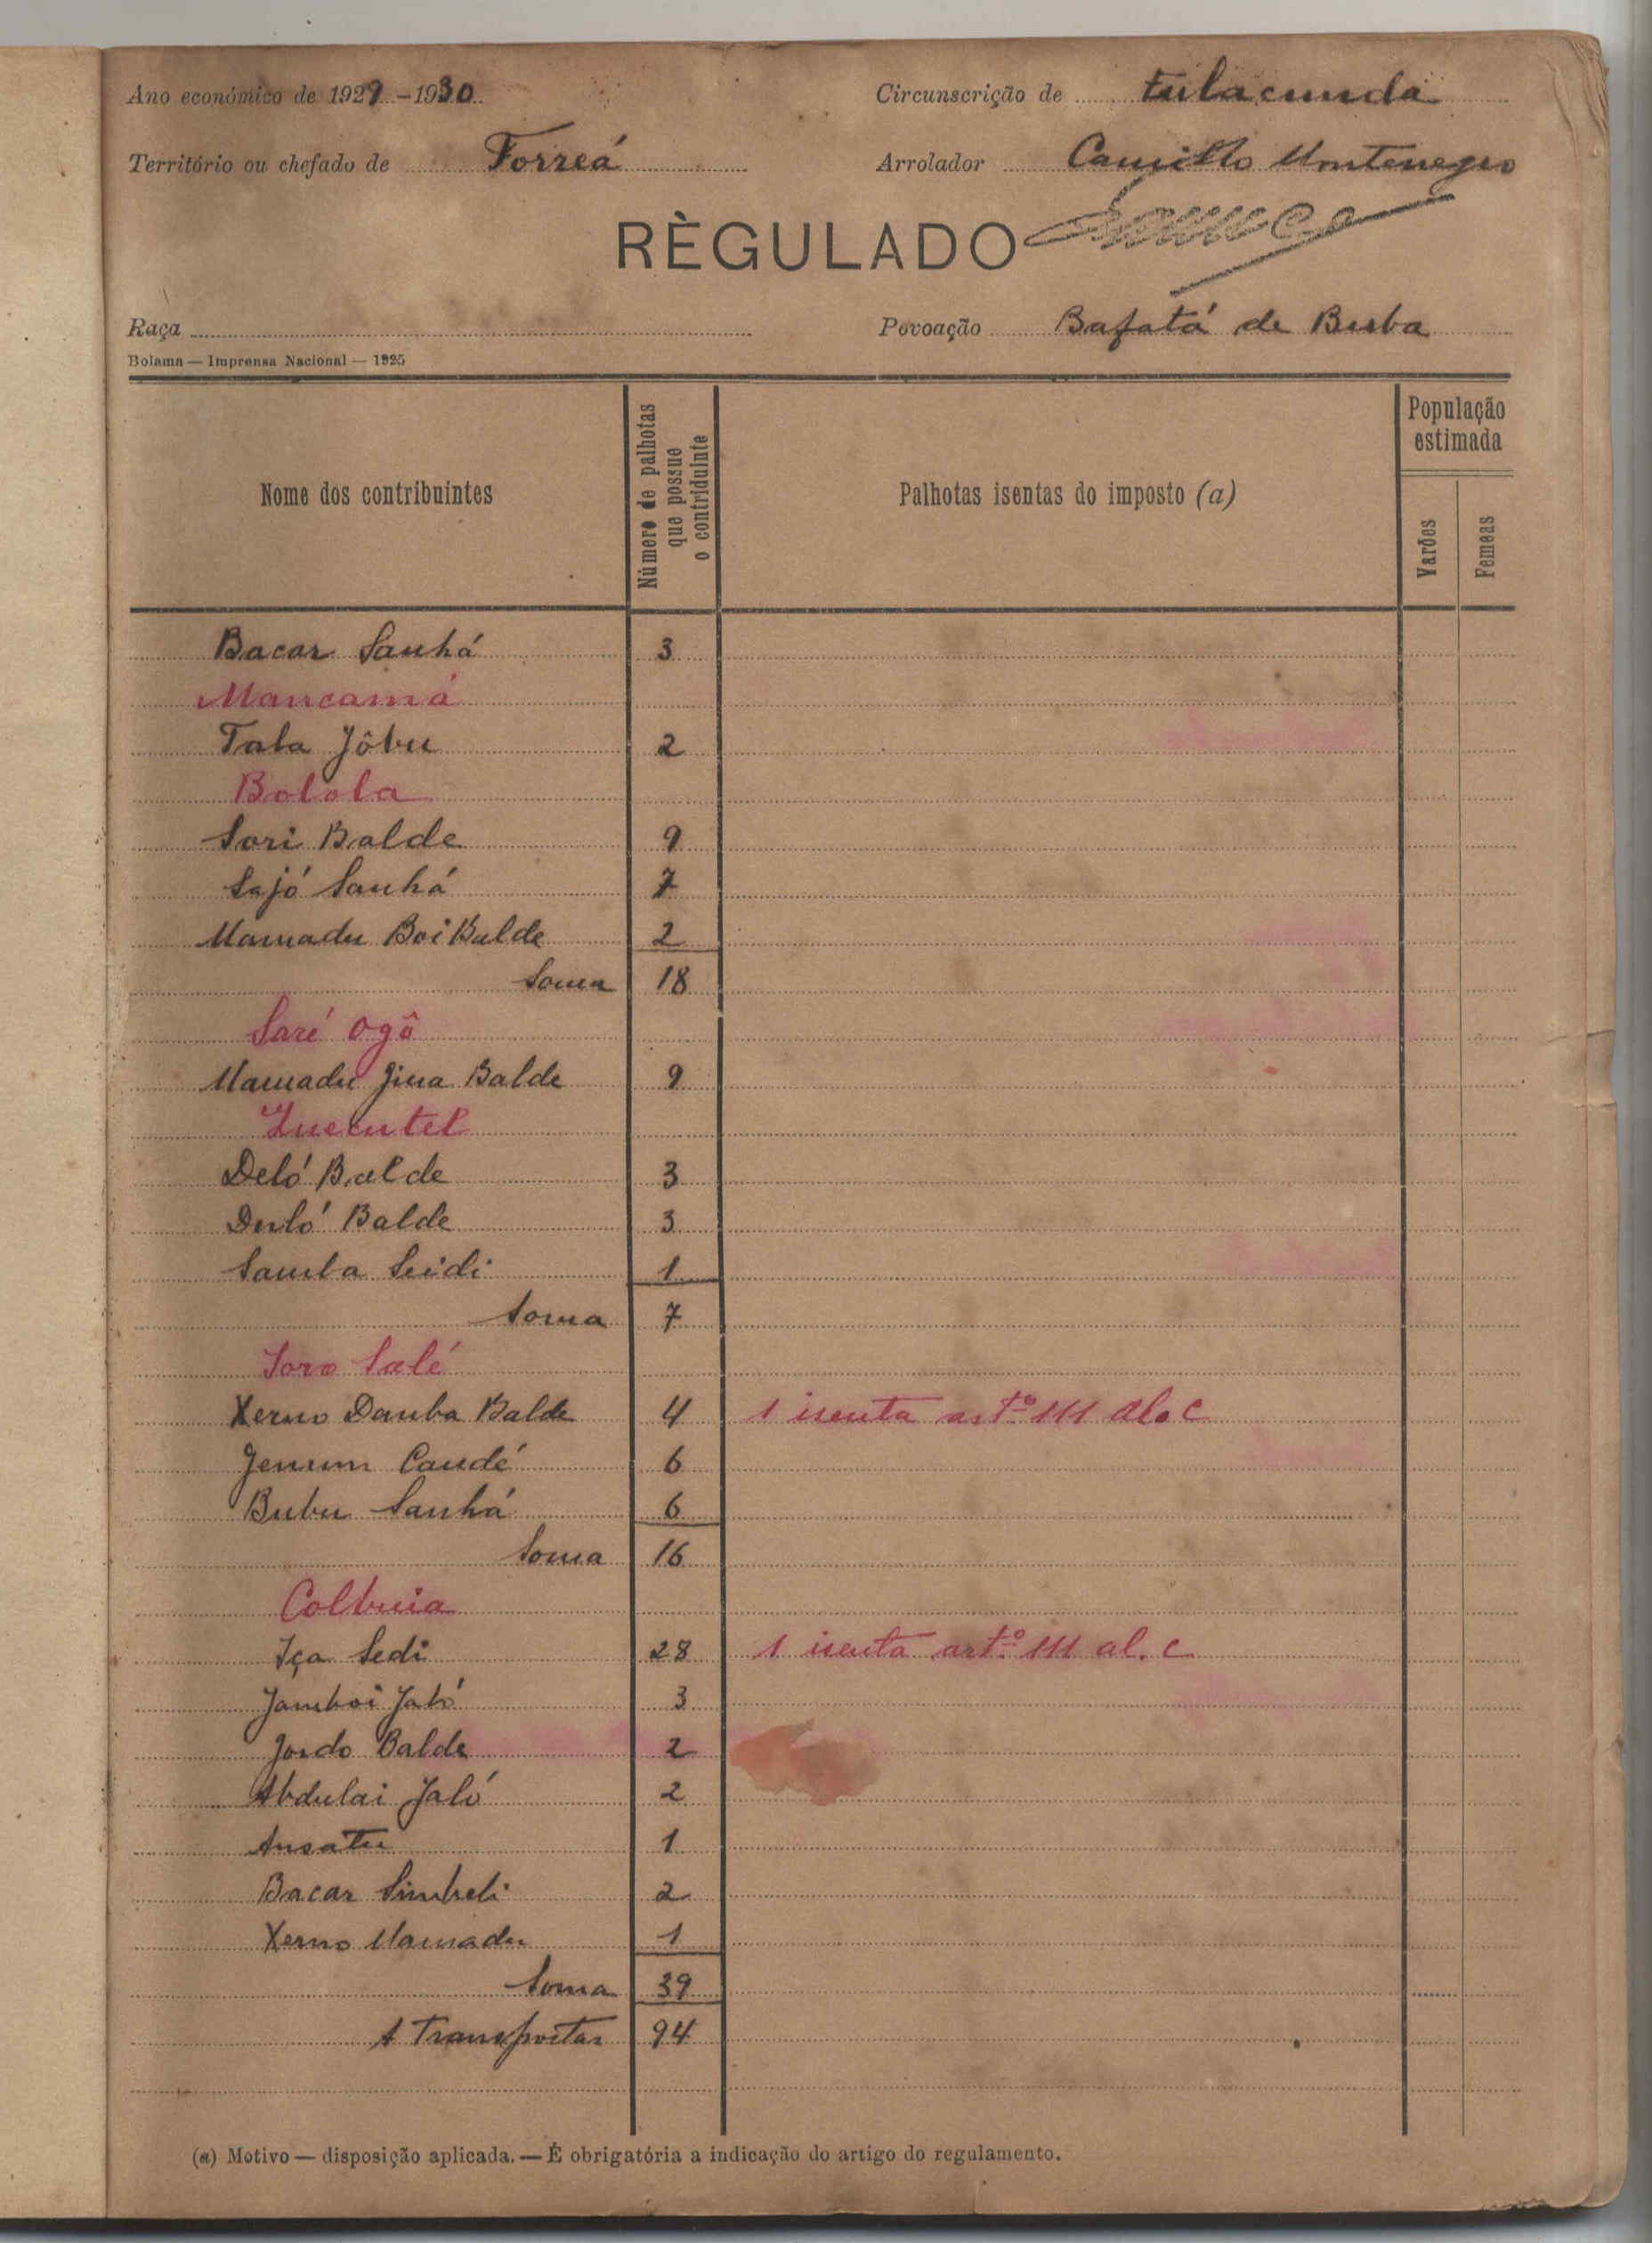 Ano económico de 1929-1930
Circunscrição de Fulacunda
Território ou chefado de Forreá
Arrolador Camillo Montenegro
RÈGULADO
Raça
Povoação Bafatá de Buba
Bolama — Imprensa Nacional — 1925
Nome dos contribuintes
Número de palhotas que possue o contriduinte
Palhotas isentas do imposto (a)
População estimada
Varões
Femeas
Bacar Sanhá 3
Mancamá
Tala Jôbu 2
Bolola
Sori Balde 9
Sajó Sanhá 7
Mamadu Boi Balde 2
Soma 18
Saré Ogô
Mamadu Jina Balde 9
Deló Balde 3
Duló Balde 3
Samba Seidi 1
Soma 7
Soro Salé
Xerno Danba Balde 4 1 isenta artº 111 al. c
Caudé 6
Bubu Sanhá 6
Soma 16
Colbuia
Iça Sedi 28 1 isenta artº 111 al. c
Jamboi Jaló 3
Jordo Balde 2
Abdulai Jaló 2
Ansatu 1
Bacar Simbeli 2
Xerno Mamadu 1
Soma 39
A Transportar 94
(a) Motivo — disposição aplicada. — É obrigatória a indicação do artigo do regulamento.